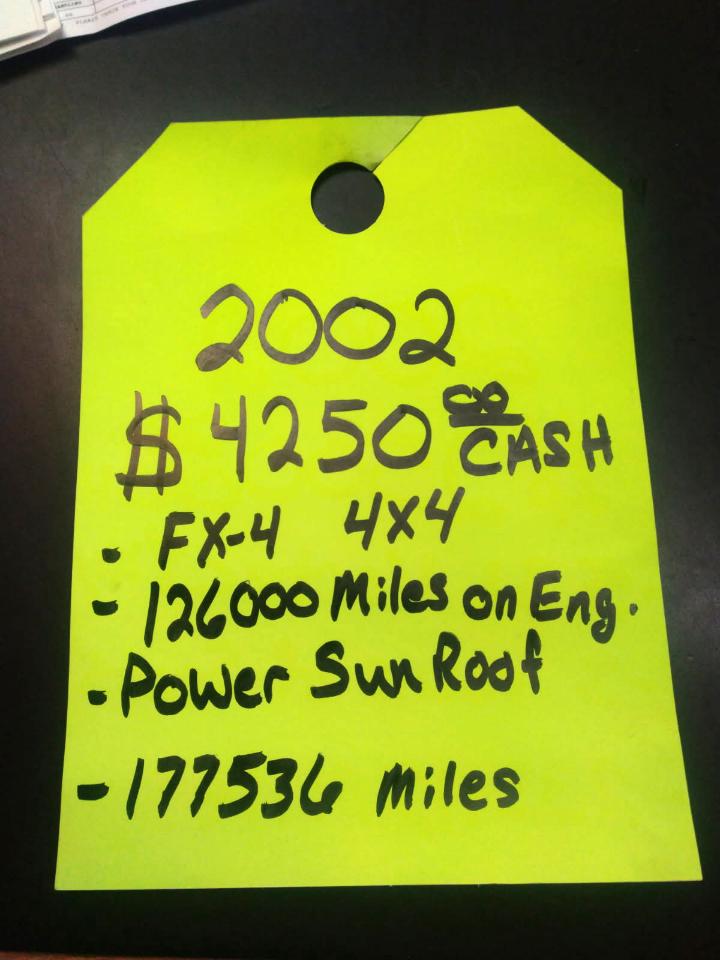 2002
$4250 00 CASH
- FX-4 4X4
- 126000 Miles on Eng.
- Power Sun Roof
- 177536 Miles